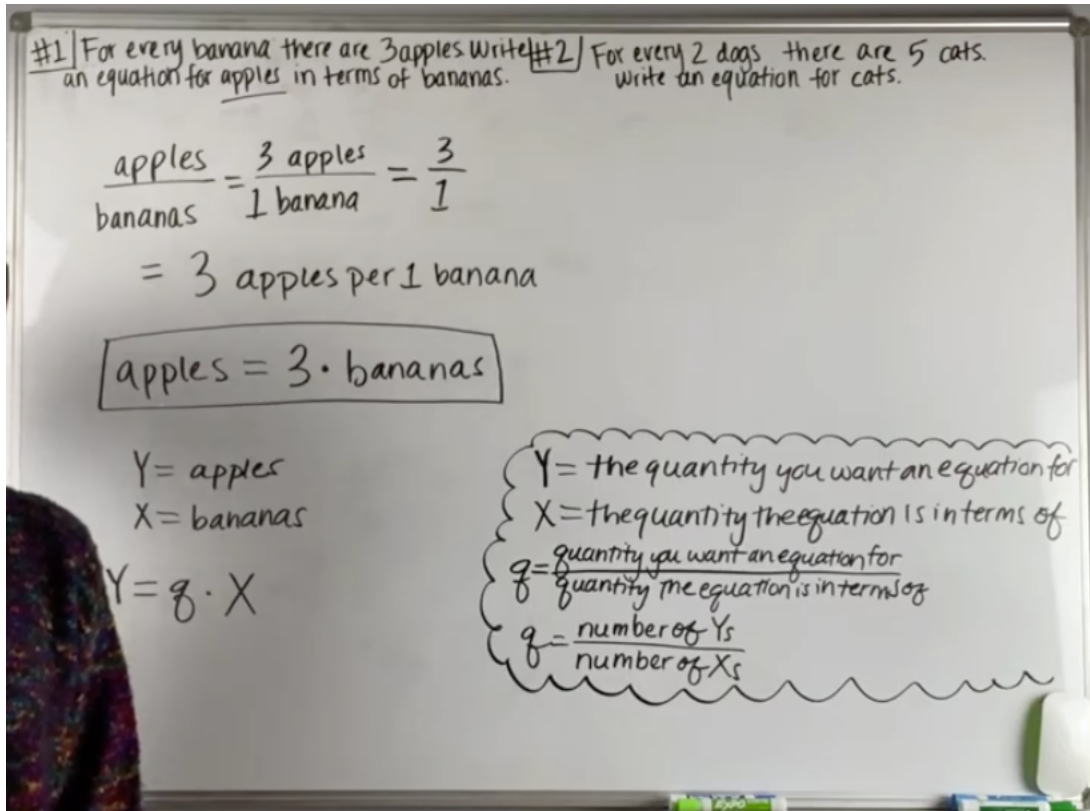 #1 For every banana there are 3 apples Write
an equation for apples in terms of bananas.
#2 For every 2 dogs there are 5 cats.
Write an equation for cats.
apples / bananas = 3 apples / 1 banana = 3 / 1
= 3 apples per 1 banana
apples = 3 · bananas
Y = apples
X = bananas
Y = q · X
Y = the quantity you want an equation for
X = the quantity the equation is in terms of
q = quantity you want an equation for / quantity the equation is in terms of
q = number of Ys / number of Xs
EXPO